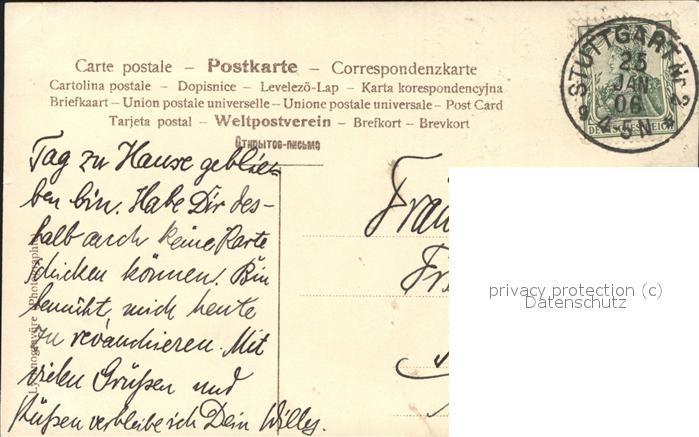 Carte postale – Postkarte – Correspondenzkarte
Cartolina postale – Dopisnice – Levelező-Lap – Karta korespondencyjna
Briefkaart – Union postale universelle – Unione postale universale – Post Card
Tarjeta postal – Weltpostverein – Brefkort – Brevkort
Открытое-письмо
STUTTGART Nr 2
25
JAN
06
4-5 N
DEUTSCHES REICH
Tag zu Hause geblie-
ben bin. Habe Dir des-
halb auch keine Karte
schicken können. Bin
bemüht mich heute
zu revanchieren. Mit
vielen Grüßen und
Küßen verbleibe ich Dein Willy.
Fräu
privacy protection (c)
Datenschutz